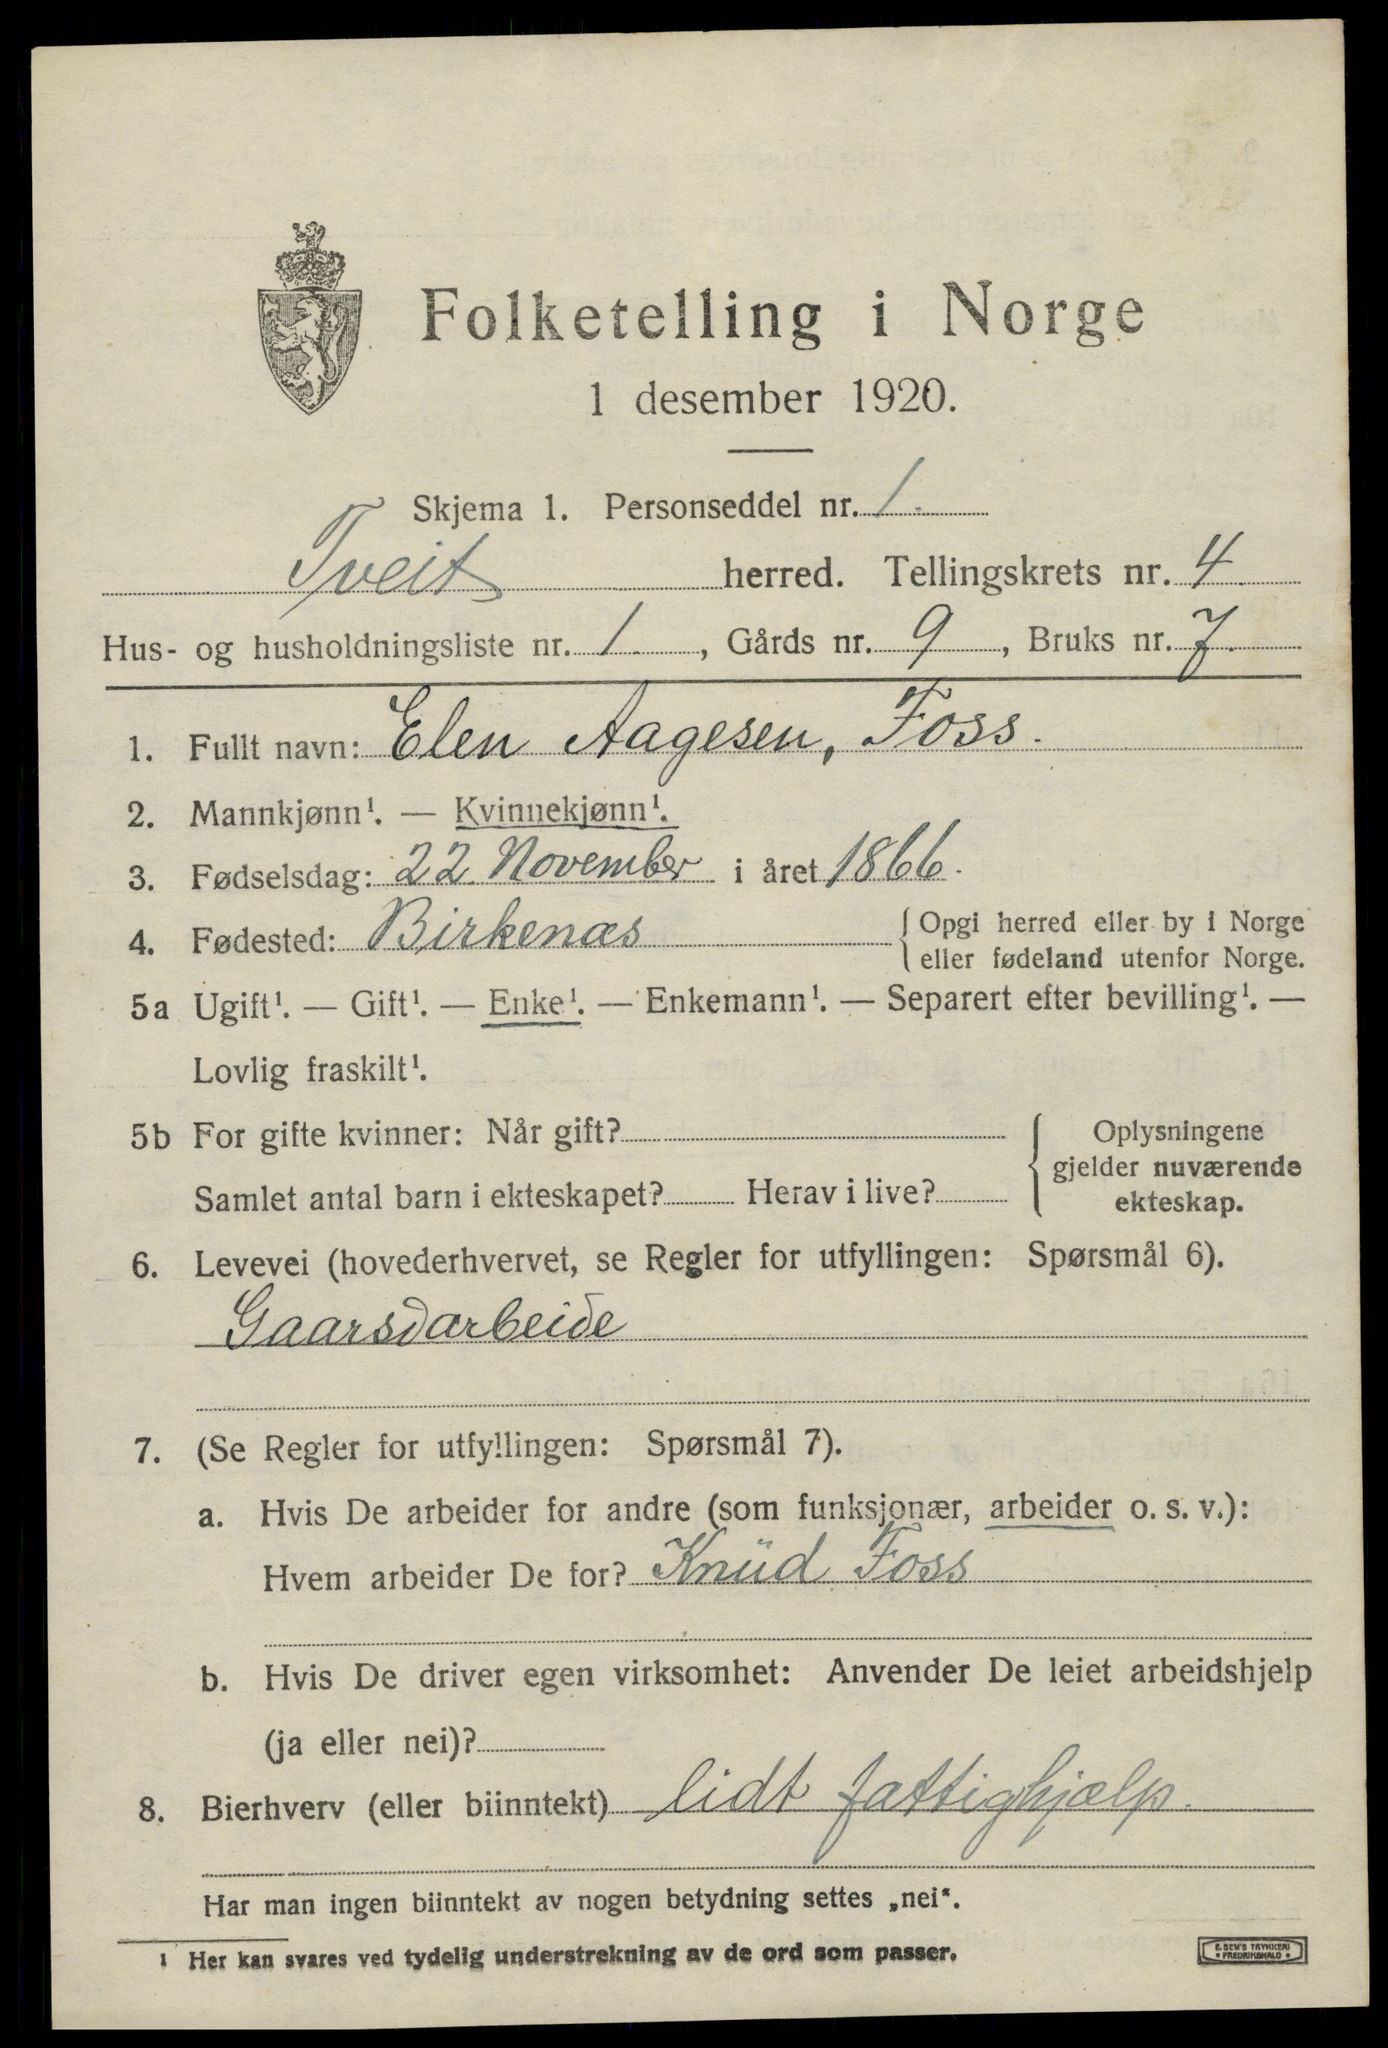 Folketelling i Norge
1 desember 1920.
Skjema 1. Personseddel nr. 1.
Tveit herred. Tellingskrets nr. 4.
Hus- og husholdningsliste nr. 1., Gårds nr. 9, Bruks nr. 7.
1. Fullt navn: Elen Aagesen, Foss.
2. Mannkjønn¹. — Kvinnekjønn¹.
3. Fødselsdag: 22 November i året 1866.
4. Fødested: Birkenæs { Opgi herred eller by i Norge
eller fødeland utenfor Norge.
5a Ugift¹. — Gift¹. — Enke¹. — Enkemann¹. — Separert efter bevilling¹. —
Lovlig fraskilt¹.
5b For gifte kvinner: Når gift? { Oplysningene
gjelder nuværende
Samlet antal barn i ekteskapet? Herav i live? ekteskap.
6. Levevei (hovederhvervet, se Regler for utfyllingen: Spørsmål 6).
Gaarsdarbeide
7. (Se Regler for utfyllingen: Spørsmål 7).
a. Hvis De arbeider for andre (som funksjonær, arbeider o. s. v.):
Hvem arbeider De for? Knüd Foss
b. Hvis De driver egen virksomhet: Anvender De leiet arbeidshjelp
(ja eller nei)?
8. Bierhverv (eller biinntekt) lidt fattighjælp.
Har man ingen biinntekt av nogen betydning settes „nei“.
¹ Her kan svares ved tydelig understrekning av de ord som passer.
E. SEM'S TRYKKERI
• FREDRIKSHALD •